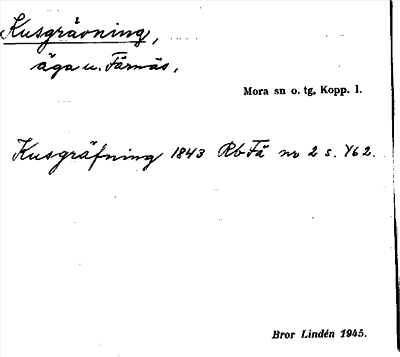 Kusgråvning,
äga u. Färnäs.
Mora sn o. tg, Kopp. l.
Kusgräfning 1843 Rb Fä nr 2 s. 462.
Bror Lindén 1945.